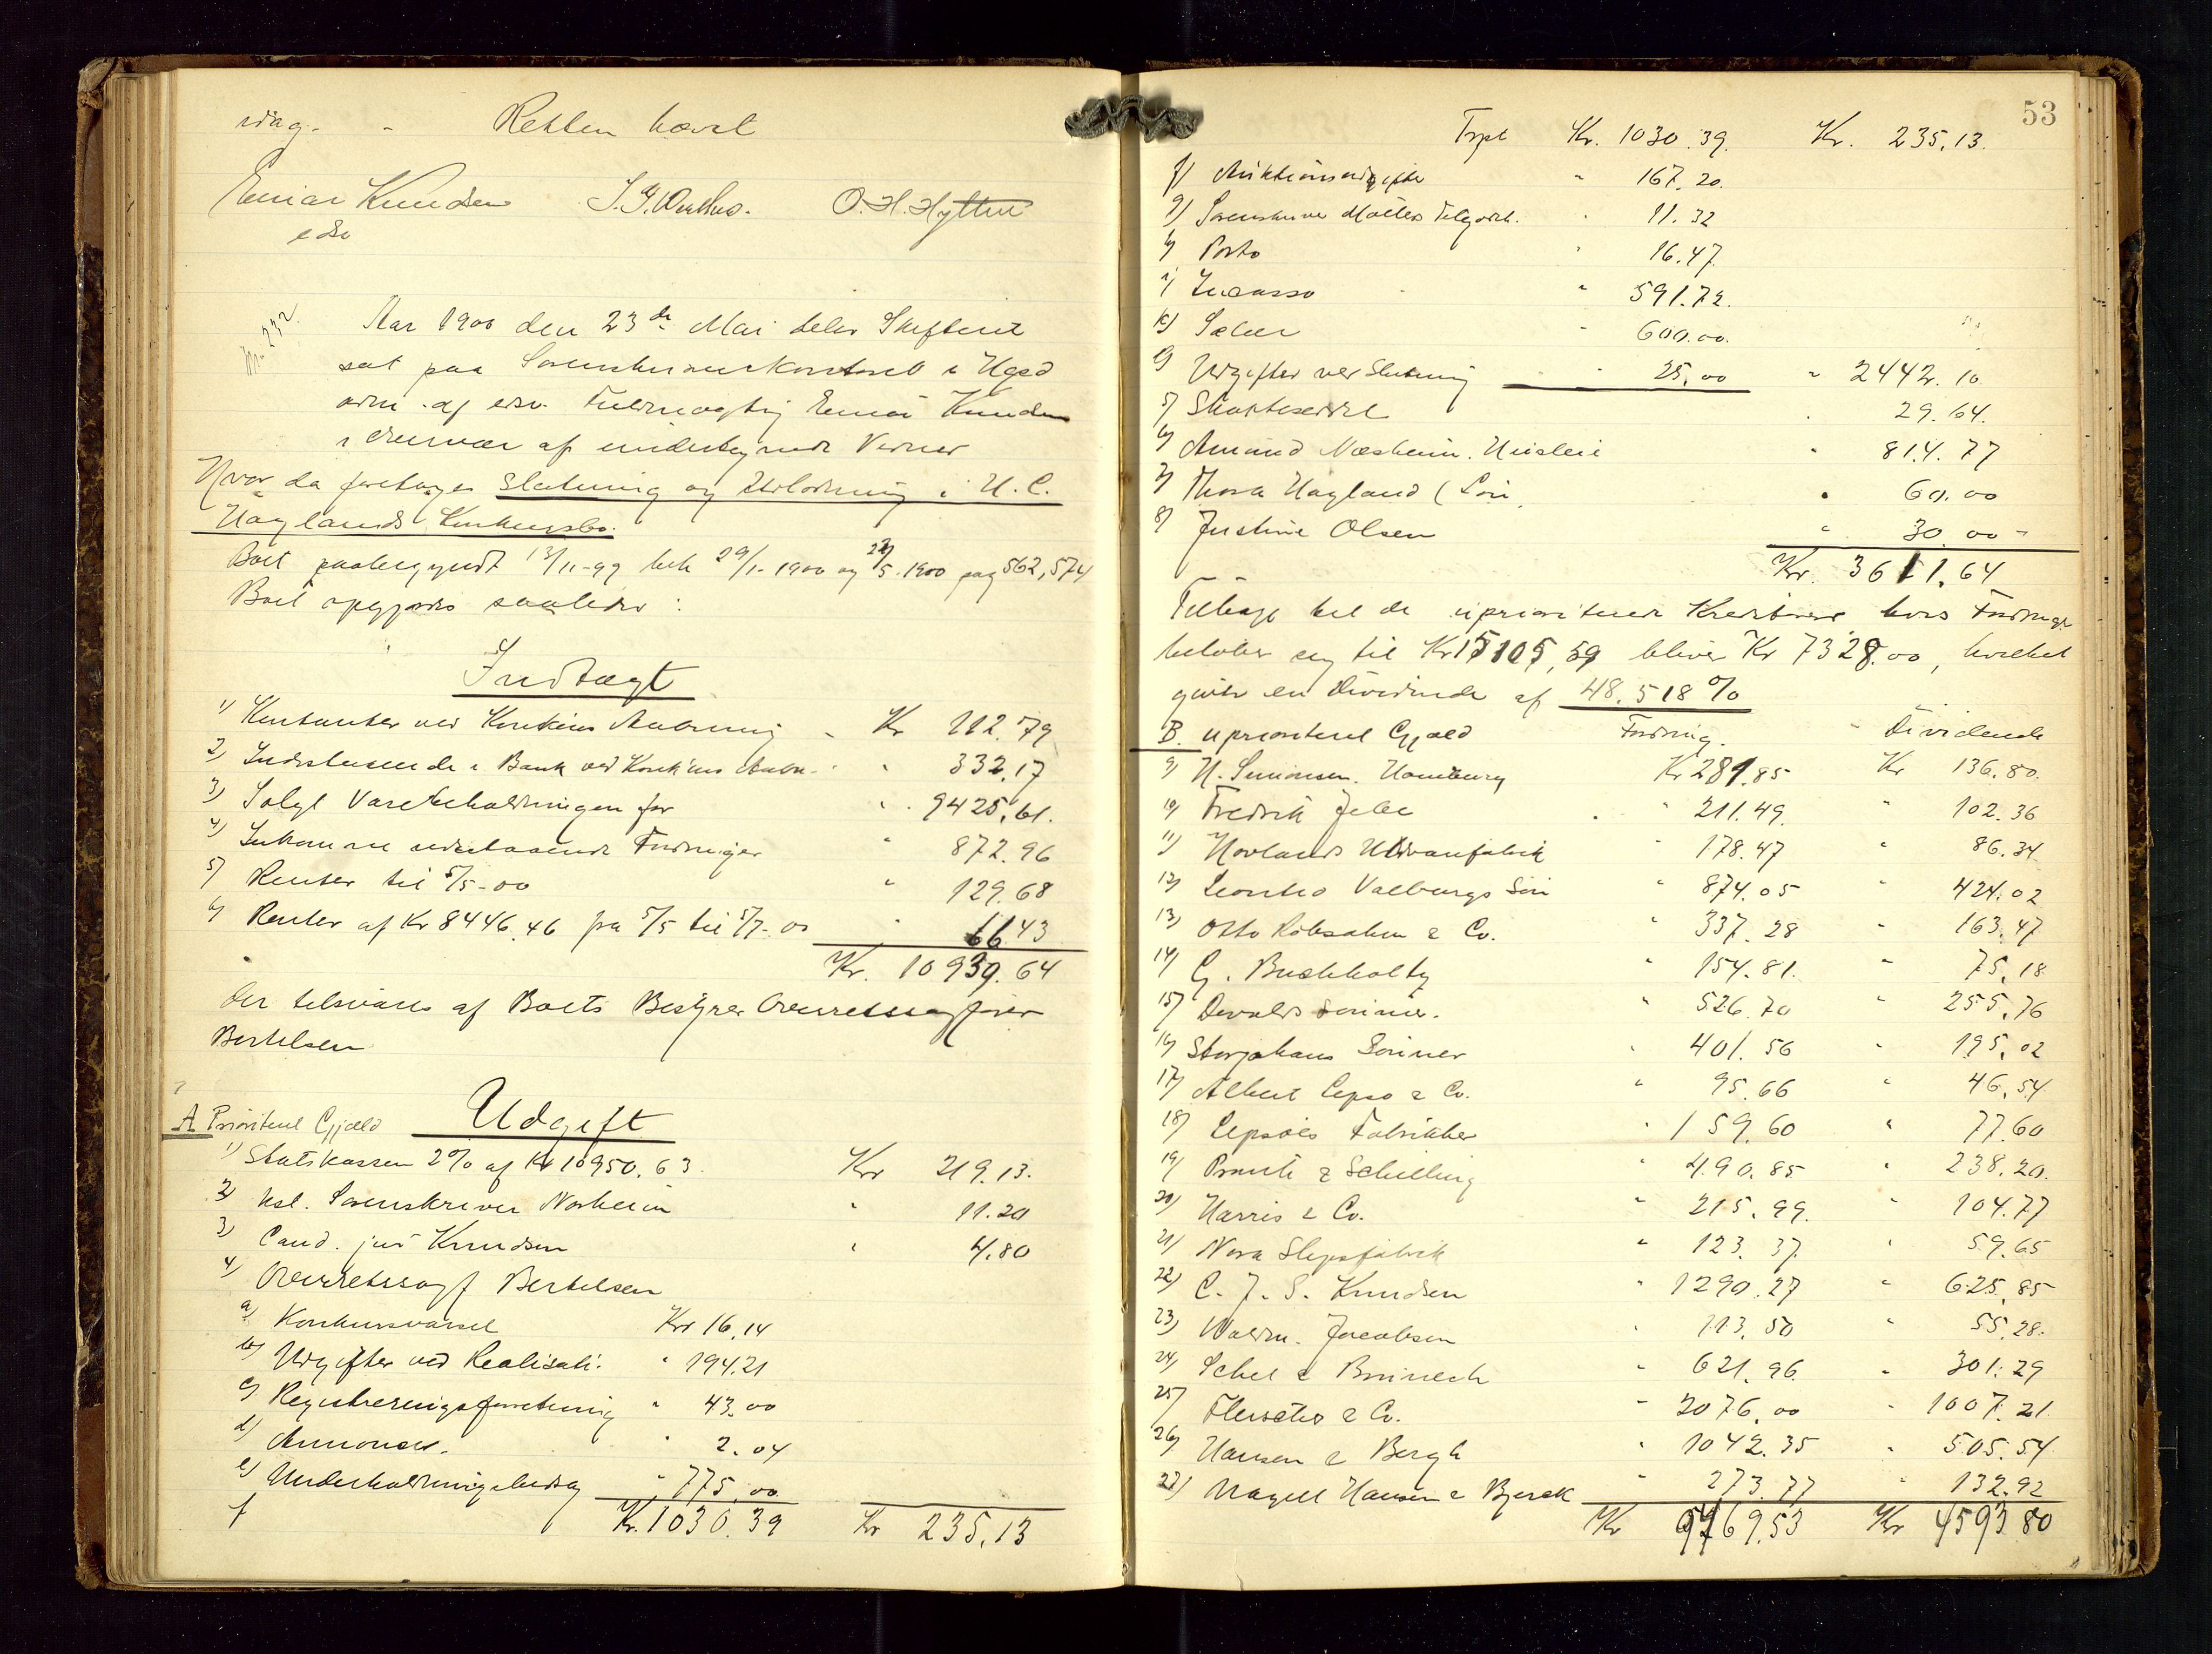 idag. - Retten hævet
Einar Knudsen
edsv
O. H. Hytten
No 232.
Aar 1900 den 23de Mai blev Skifteret
sat paa Sorenskriverkontoret i Hgsd
adm. af edsv. Fuldmægtig Einar Knudsen
i Overvær af undertegnede Vidner
Hvor da foretoges Slutning og Udlodning i H. C.
Haglands Konkursbo.
Boet paabegyndt 13/11-99 beh 29/1-1900 og 22/5.1900 pag 562, 574
Boet opgjøres saaledes:
Indtægt
1) Kontanter ved Konkurs Aabning - Kr 112.79
2) Indestaaende i Bank ved Konk'ens Aabn. - " 332.17
3) Solgt Varebeholdningen for " 9425.61.
4) Inkomne udestaaende Fordringer " 872.96
5) Renter til 5/5-00 " 129.68
6) Renter af Kr 8446.46 fra 5/5 til 5/7-00 " 66.43
Kr. 10939.64
der tilsvares af Boets Bestyrer Overretssagfører
Bertelsen
Udgift
A Prioriteret Gjæld
1) Statskassen 2% af Kr 10950.63. Kr 219.13.
2) kst. Sorenskriver Norheim " 11.20
3) Cand. jur Knudsen " 4.80
4) Overretssagf Bertelsen
a) Konkursvarsel Kr 16.14
b) Udgifter ved Realisati. " 194.21
c) Registreringsforretning " 43.00
d) Annonser. " 2.04
e) Underholdningsbidrag " 775.00
f Kr. 1030.39 Kr 235.13
53
Trpt Kr. 1030.39. Kr. 235.13.
f) Auktionsudgifter " 167.20.
g) Sorenskriver Møllers Tilgodeh. " 11.32
h) Porto " 16.47
i) Incasso " 591.72.
k) Salær " 600.00.
l) Udgifter ved Slutning " 25.00 " 2442.10
5) Skatteseddel " 29.64.
6) Amund Næsheim. Husleie " 814.77
7) Thora Hagland (Løn " 60.00
8) Justine Olsen " 30.00 -
Kr. 3611.64
Tilbage til de uprioriterede Kreditorer hvis Fordringer
beløber sig til Kr 15105.59 bliver Kr 7328.00, hvilket
giver en Dividende af 48.518 %
B. uprioriteret Gjæld Fordring. - Dividende
9) H. Simonsen. Hamburg Kr 281.85 Kr 136.80.
10) Fredrik Jebe " 211.49. " 102.36
11) Hovlands Uldvarefabrik " 178.47 " 86.34
12) Leonhd Valbergs Søn " 874.05 " 424.02
13) Otto Robsahm & Co. " 337.28 " 163.47
14) G. Buchholtz " 154.81. " 75.18
15) Devolds Sønner. " 526.70 " 255.76
16) Storjohans Sønner " 401.56 " 195.02
17) Albert Lepsø & Co. " 95.66 " 46.54
18) Lepsøes Fabrikker " 159.60 " 77.60
19) & Schilling " 490.85 " 238.20.
20) Harris & Co. " 215.99. " 104.77
21) Nora Slipsfabrik " 123.37. " 59.65
22) C. J. S. Knudsen " 1290.27 " 625.85
23) Waldm. Jacobsen " 113.50 " 55.28.
24) Schel & " 621.96. " 301.29
25) & Co. " 2076.00 " 1007.21
26) Hansen & Bergh " 1042.35 " 505.54
27) Magell Hansen & Bjerck " 273.77 " 132.92
Kr 9469.53 Kr 4593.80